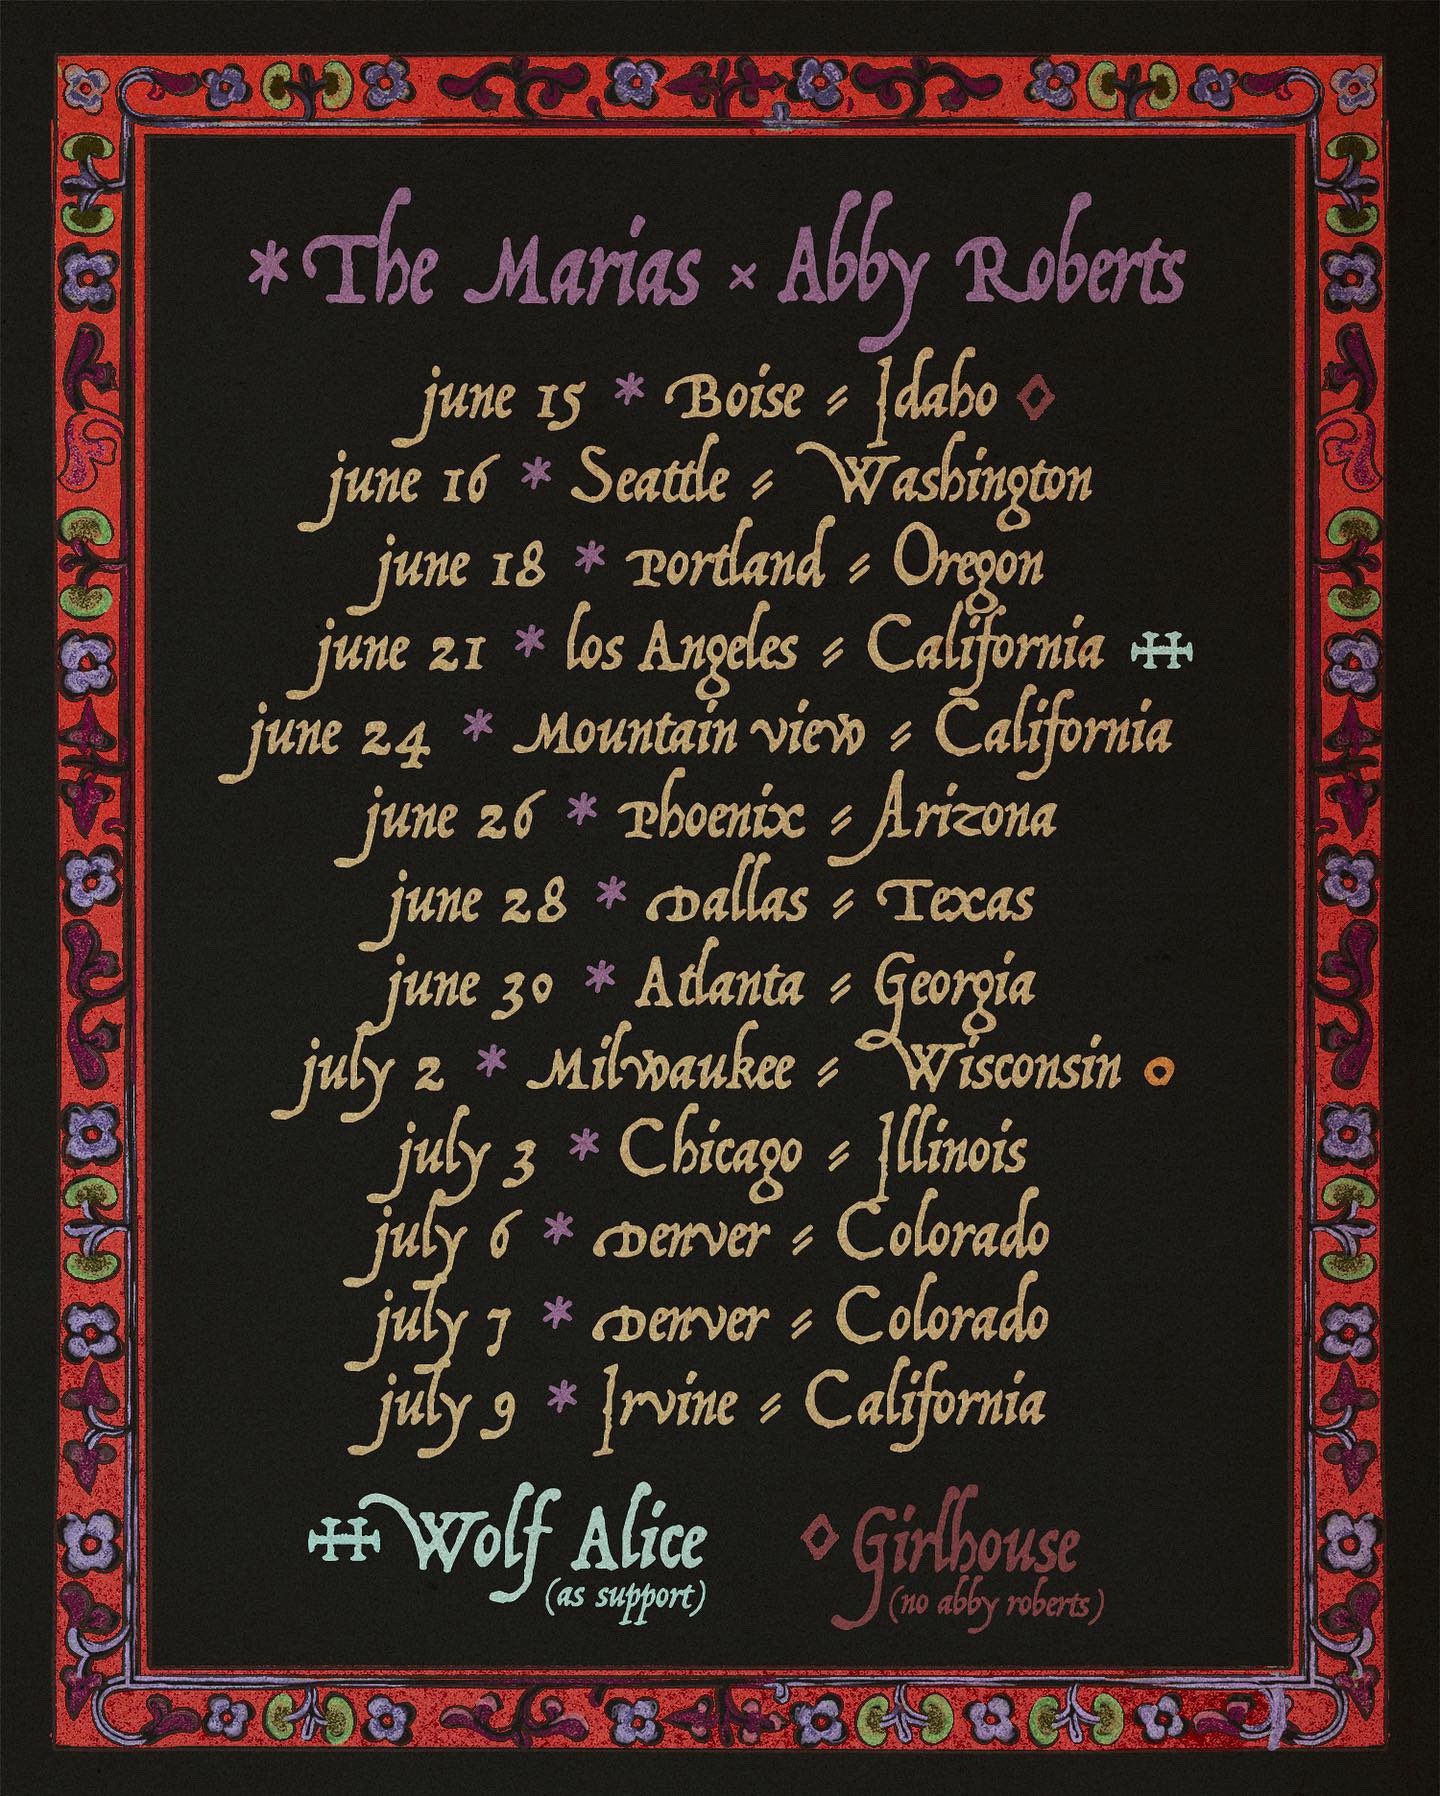 * The Marías × Abby Roberts
june 15 * Boise = Idaho ◇
june 16 * Seattle = Washington
june 18 * Portland = Oregon
june 21 * los Angeles = California ⵌ
june 24 * Mountain view = California
june 26 * Phoenix = Arizona
june 28 * Dallas = Texas
june 30 * Atlanta = Georgia
july 2 * Milwaukee = Wisconsin o
july 3 * Chicago = Illinois
july 6 * Denver = Colorado
july 7 * Denver = Colorado
july 9 * Irvine = California
ⵌ Wolf Alice
(as support)
◇ Girlhouse
(no abby roberts)